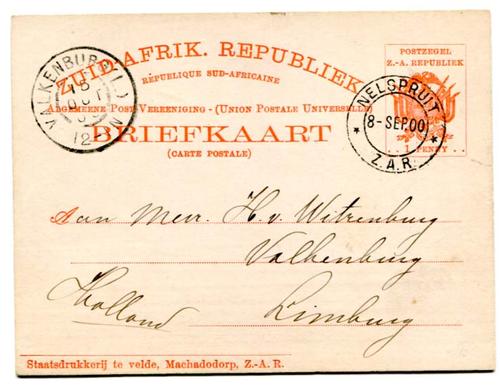 ZUID-AFRIK. REPUBLIEK
RÉPUBLIQUE SUD-AFRICAINE
ALGEMEENE POST-VEREENIGING - (UNION POSTALE UNIVERSELLE)
BRIEFKAART
(CARTE POSTALE)
POSTZEGEL
Z.-A. REPUBLIEK
1 PENNY
VALKENBURG (L.)
15
12
NELSPRUIT
8-SEP.00
Z.A.R.
Aan Meur. H. v. Witzenburg
Valkenburg
Holland Limburg
Staatsdrukkerij te velde, Machadodorp, Z.-A. R.